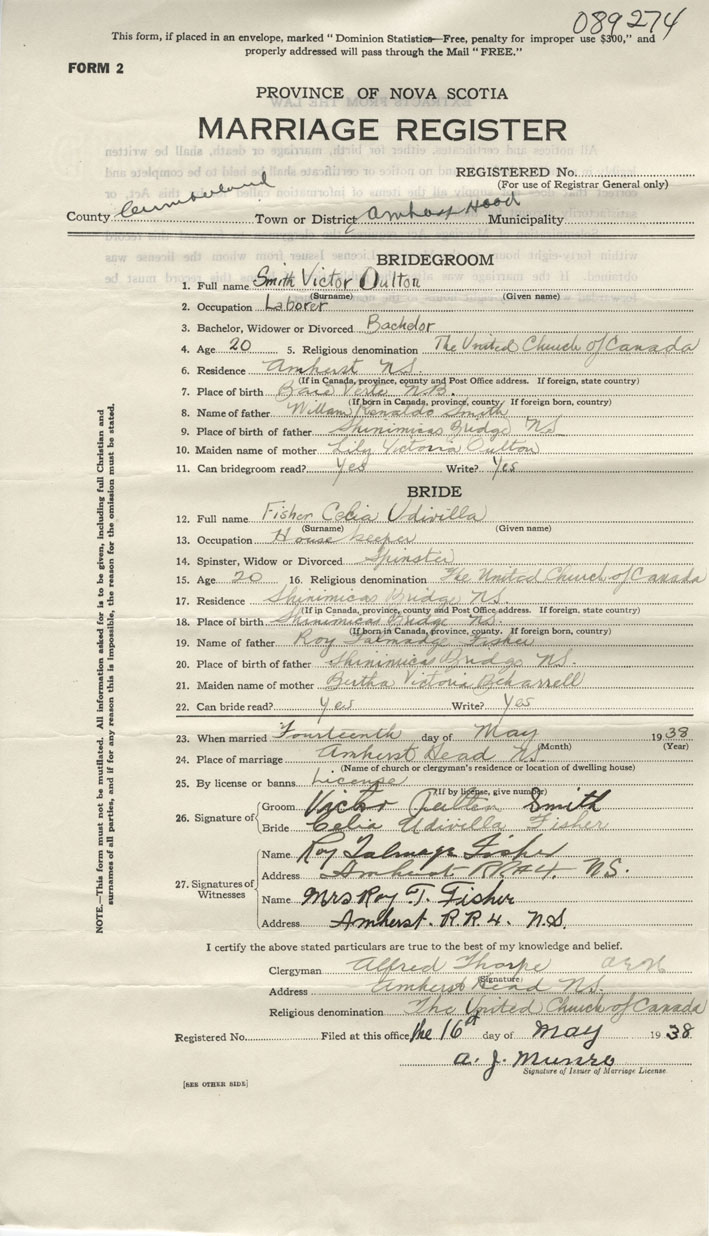 089274
This form, if placed in an envelope, marked " Dominion Statistics—Free, penalty for improper use $300," and
properly addressed will pass through the Mail " FREE."
FORM 2
PROVINCE OF NOVA SCOTIA
MARRIAGE REGISTER
REGISTERED No.
(For use of Registrar General only)
County Cumberland Town or District Amherst Head Municipality
BRIDEGROOM
1. Full name Smith Victor Oulton
(Surname) (Given name)
2. Occupation Laborer
3. Bachelor, Widower or Divorced Bachelor
4. Age 20 5. Religious denomination The United Church of Canada
6. Residence Amherst N.S.
(If in Canada, province, county and Post Office address. If foreign, state country)
7. Place of birth Baie Verte N.B.
(If born in Canada, province, county. If foreign born, country)
8. Name of father Willam Ronaldo Smith
9. Place of birth of father Shinimicas Bridge N.S.
10. Maiden name of mother Lily Victoria Oulton
11. Can bridegroom read? Yes Write? Yes
BRIDE
12. Full name Fisher Celia Udivilla
(Surname) (Given name)
13. Occupation House keeper
14. Spinster, Widow or Divorced Spinster
15. Age 20 16. Religious denomination The United Church of Canada
17. Residence Shinimicas Bridge N.S.
(If in Canada, province, county and Post Office address. If foreign, state country)
18. Place of birth Shinimicas Bridge N.S.
(If born in Canada, province, county. If foreign born, country)
19. Name of father Roy Talmadge Fisher
20. Place of birth of father Shinimicas Bridge N.S.
21. Maiden name of mother Bertha Victoria Beharrell
22. Can bride read? Yes Write? Yes
23. When married Fourteenth day of May 1938
(Month) (Year)
24. Place of marriage Amherst Head N.S.
(Name of church or clergyman's residence or location of dwelling house)
25. By license or banns License
(If by license, give number)
26. Signature of Groom Victor Oulton Smith
Bride Celia Udivilla Fisher
27. Signatures of Witnesses
Name Roy Talmage Fisher
Address Amherst R.R.#4. N.S.
Name Mrs Roy T. Fisher
Address Amherst. R.R.4. N.S.
I certify the above stated particulars are true to the best of my knowledge and belief.
Clergyman Alfred Thorpe
(Signature)
Address Amherst Head N.S.
Religious denomination The United Church of Canada
Registered No. Filed at this office the 16th day of May 1938
A. J. Munro
Signature of Issuer of Marriage License
[SEE OTHER SIDE]
NOTE.—This form must not be mutilated. All information asked for is to be given, including full Christian and
surnames of all parties, and if for any reason this is impossible, the reason for the omission must be stated.